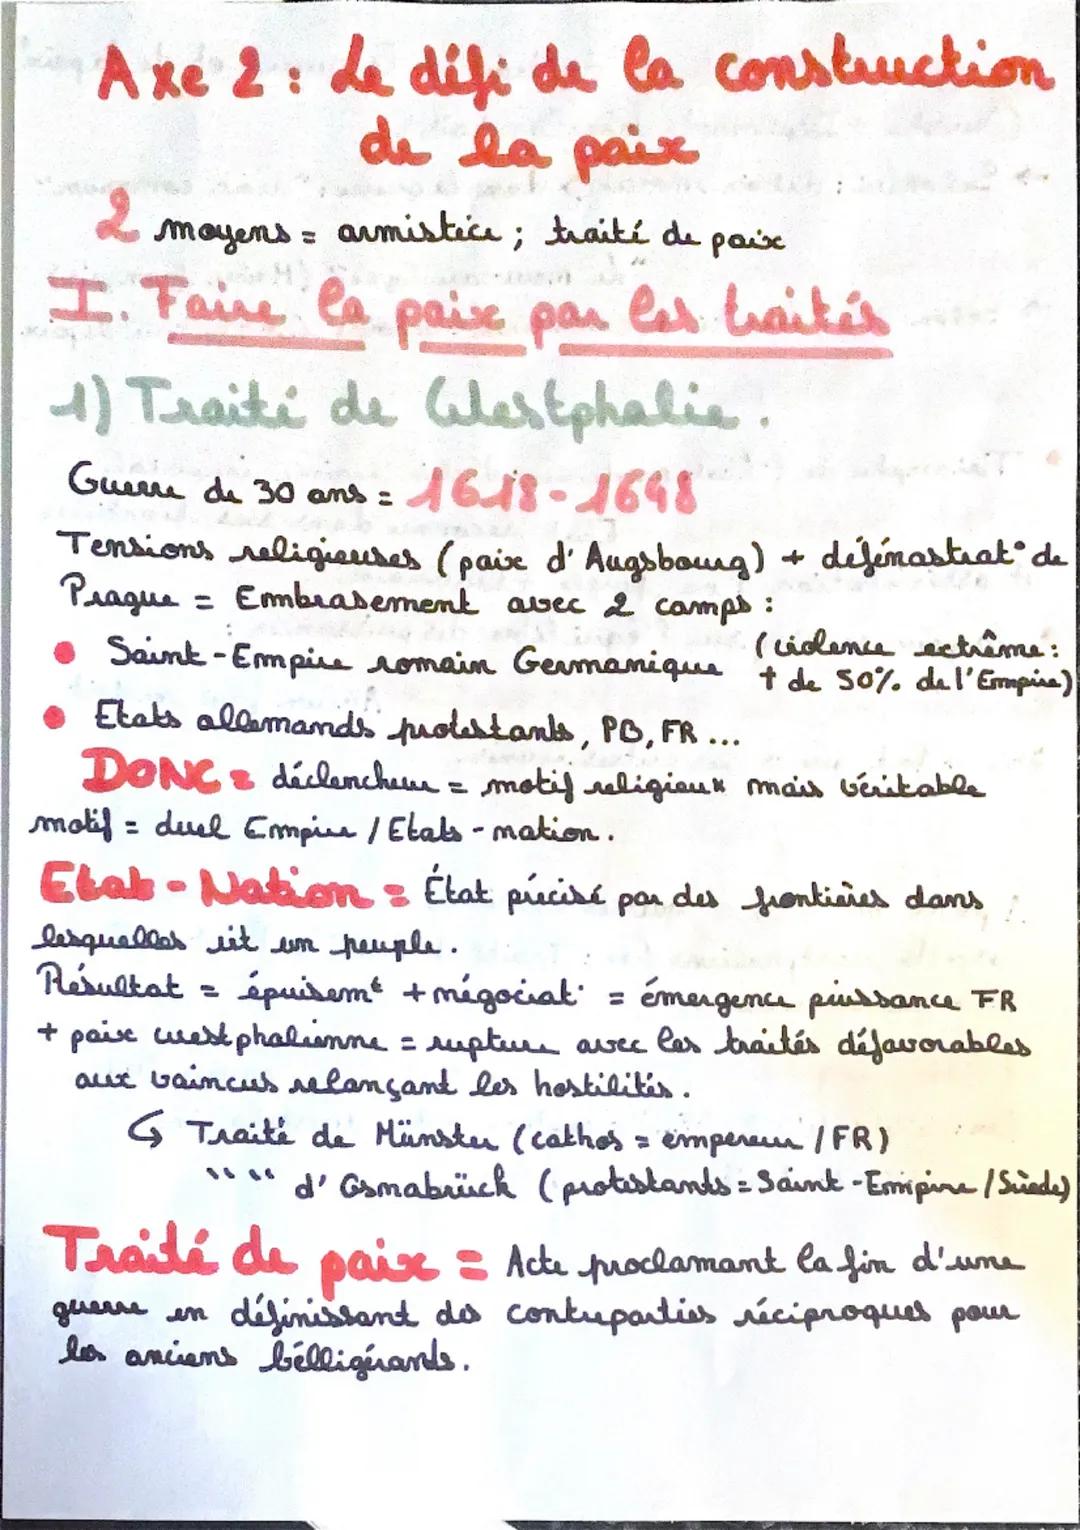 Axe 2 : Le défi de la construction
de la paix
2 moyens = armistice ; traité de paix
I. Faire la paix par les traités
1) Traité de Westphalie.
Guerre de 30 ans = 1618-1648
Tensions religieuses (paix d'Augsbourg) + défénastrat° de
Prague = Embrasement avec 2 camps :
• Saint-Empire romain Germanique (violence extrême :
† de 50% de l'Empire)
• Etats allemands protestants, PB, FR ...
DONC = déclencheur = motif religieux mais véritable
motif = duel Empire / Etats-nation.
Etat-Nation = État précisé par des frontières dans
lesquelles vit un peuple.
Résultat = épuisemt + négociat° = émergence puissance FR
+ paix westphalienne = rupture avec les traités défavorables
aux vaincus relançant les hostilités.
↳ Traité de Münster (cathos = empereur / FR)
" " " " d'Osnabrück (protestants = Saint-Empire / Suède)
Traité de paix = Acte proclamant la fin d'une
guerre en définissant des contreparties réciproques pour
les anciens bélligérants.